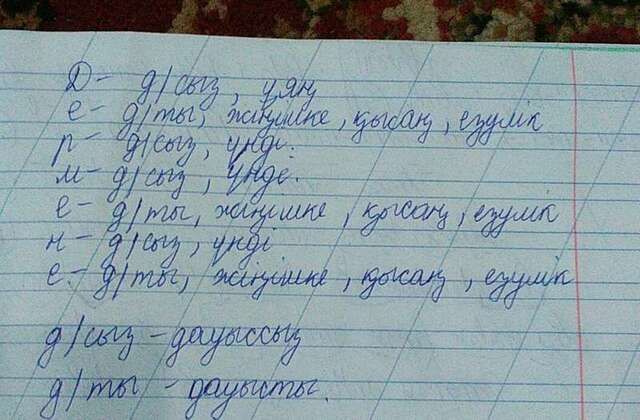 Д- д/сыз, ұяң
е- д/ты, жіңішке, қысаң, езулік
р- д/сыз, үнді.
м- д/сыз, үнді.
е- д/ты, жіңішке, қысаң, езулік
н- д/сыз, үнді
е- д/ты, жіңішке, қысаң, езулік
д/сыз - дауыссыз
д/ты - дауысты.